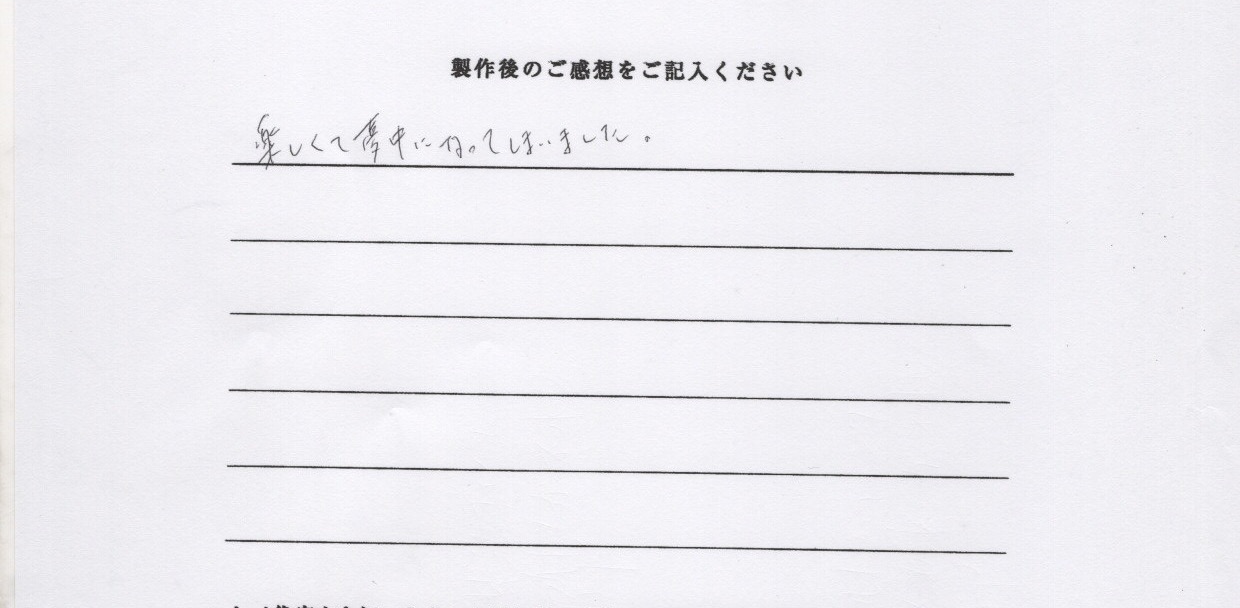 製作後のご感想をご記入ください
楽しくて夢中になってしまいました。